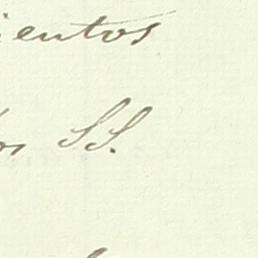 ientos
os SS.